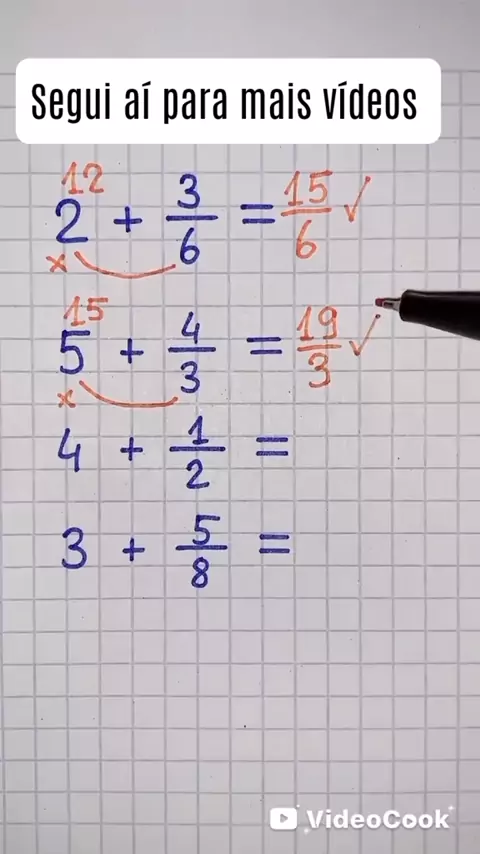 Segui aí para mais vídeos
12
2 + 3/6 = 15/6 ✓
x
15
5 + 4/3 = 19/3 ✓
x
4 + 1/2 =
3 + 5/8 =
VideoCook